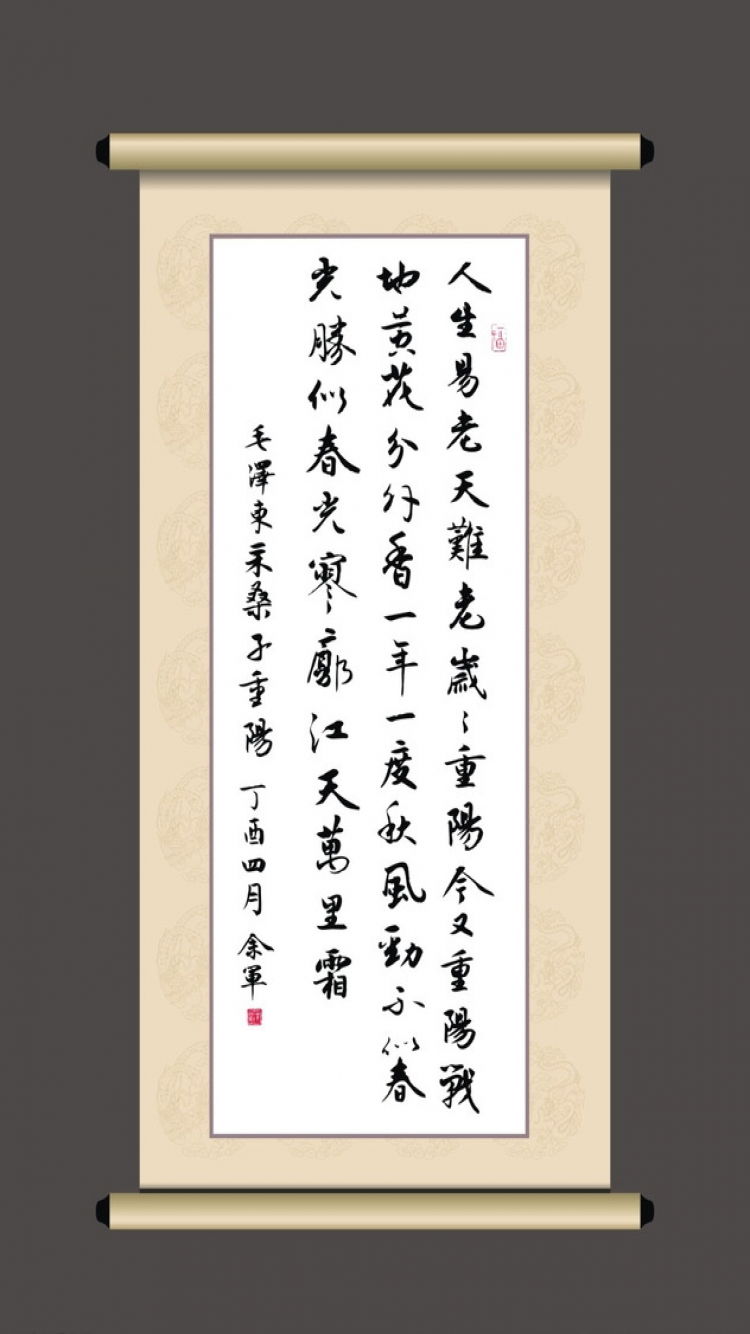 人生易老天難老歲〻重陽今又重陽戰
地黃花分外香一年一度秋風勁不似春
光勝似春光寥〻廓江天萬里霜
毛澤東采桑子重陽 丁酉四月 余軍